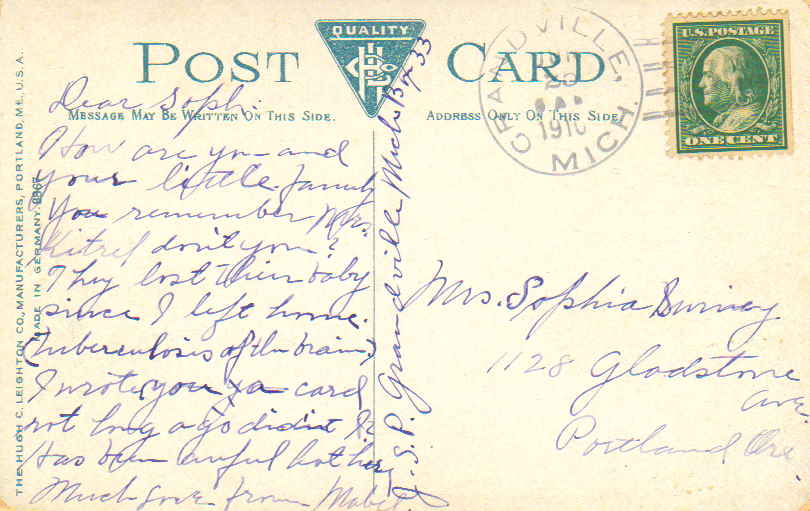 POST CARD
QUALITY
MESSAGE MAY BE WRITTEN ON THIS SIDE.
ADDRESS ONLY ON THIS SIDE.
THE HUGH C. LEIGHTON CO., MANUFACTURERS, PORTLAND, ME., U.S.A.
MADE IN GERMANY.
GRANDVILLE,
1910
MICH.
U.S. POSTAGE
ONE CENT
Dear Soph.
How are you and
your little family
You remember Mrs.
don't you?
They lost their baby
since I left home.
(Tuberculosis of the brain)
I wrote you a card
not long ago didn't I?
Has been awful hot here
Much love from Mabel
P.S. Grandville Mich Box 33
Mrs. Sophia
1128 Gladstone
ave.
Portland Ore